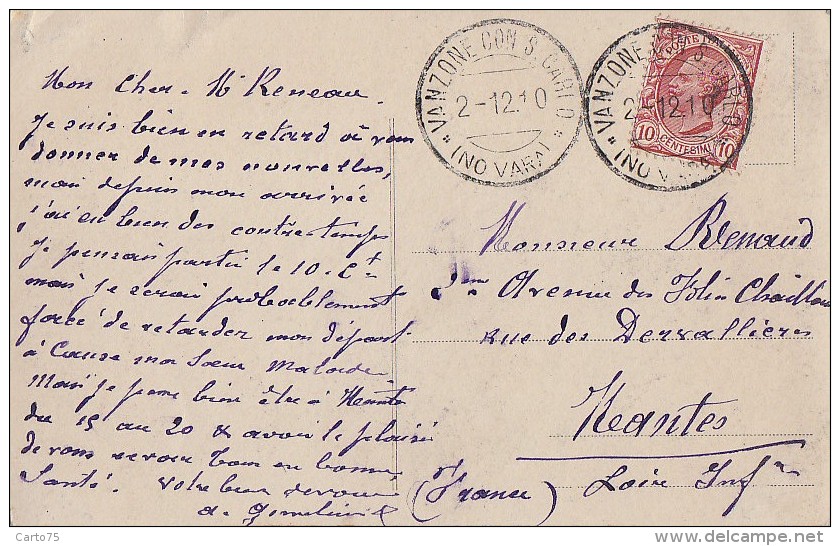 Mon Cher Mr Reneau
Je suis bien en retard à vous
donner de mes nouvelles,
mais depuis mon arrivée
j'ai eu bien des contre-temps
je pensais partir le 10. Ct
mais je serai probablement
forcé de retarder mon départ
à Cause ma Sœur Malade
Mais je pense bien être à Nantes
du 15 au 20 & avoir le plaisir
de vous revoir tous en bonne
Santé. Votre bien dévoué
VANZONE CON S. CARLO
2-12.10
(NOVARA)
VANZONE CON S. CARLO
2-12.10
(NOVARA)
POSTE ITALIANE
10 CENTESIMI 10
Monsieur Renaud
Avenue des Folies Chaillou
Rue des Dervallières
Nantes
Loire Infre
(France)
Carto75
www.delcampe.net